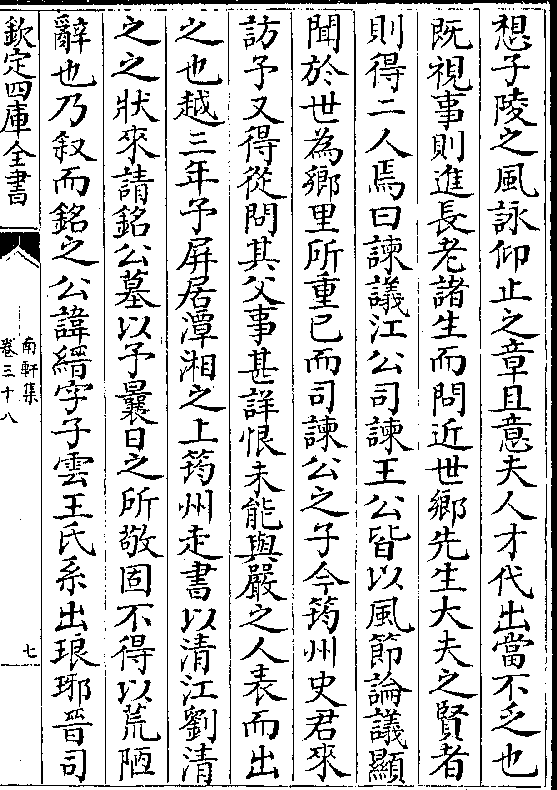 想子陵之風詠仰止之章且意夫人才代出當不乏也
既視事則進長老諸生而問近世鄉先生大夫之賢者
則得二人焉曰諫議江公司諫王公皆以風節論議顯
聞於世為鄉里所重已而司諫公之子今筠州史君來
訪予又得從問其父事甚詳恨未能與嚴之人表而出
之也越三年予屏居潭湘之上筠州走書以清江劉清
之之狀來請銘公墓以予曩日之所敬固不得以荒陋
辭也乃叙而銘之公諱縉字子雲王氏系出琅琊晉司
欽定四庫全書
南軒集
卷三十八
七